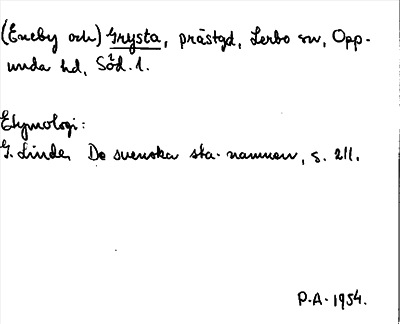 (Eneby och) Grysta, prästgd, Lerbo sn, Opp-
unda hd, Söd. l.
Etymologi:
G. Linde, De svenska sta-namnen, s. 211.
P.A. 1954.